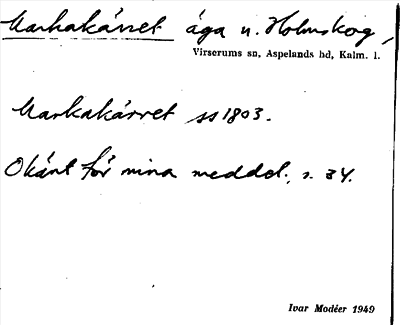 Markakärret äga u. Holmskog,
Virserums sn, Aspelands hd, Kalm. l.
Markakärret ss 1803.
Okänt för mina meddel., s. 34.
Ivar Modéer 1949